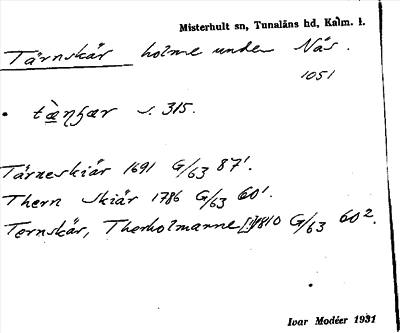 Misterhult sn, Tunaläns hd, Kalm. l.
Tärnskär holme under Näs.
1051
• tæ̀ŋʂær s. 315.
Tärneskiär 1691 G/63 87¹.
Thern skiär 1786 G/63 60¹.
Ternskär, Therholmarne [!] 1810 G/63 60².
Ivar Modéer 1931